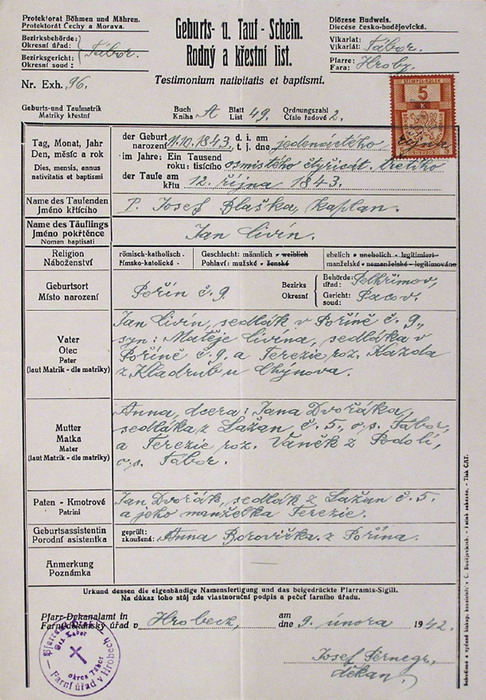 Protektorat Böhmen und Mähren.
Protektorát Čechy a Morava.
Bezirksbehörde:
Okresní úřad: Tábor.
Bezirksgericht:
Okresní soud:
Nr. Exh. 96.
Geburts- u. Tauf - Schein.
Rodný a křestní list.
Testimonium nativitatis et baptismi.
Diözese Budweis.
Diecése česko-budějovická.
Vikariat:
Vikariát: Tábor.
Pfarre:
Fara: Hroby.
5
K
Geburts-und Taufmatrik
Matriky křestní
Buch
Kniha A
Blatt
List 49,
Ordnungszahl
Číslo řadové 2.
Tag, Monat, Jahr
Den, měsíc a rok
Dies, mensis, annus
nativitatis et baptismi
der Geburt
narození 11.10.1843,
d. i. am
t. j. dne jedenáctého října
im Jahre: Ein Tausend
roku: tisícího osmistého čtyřicát. třetího
der Taufe am
křtu 12. října 1843.
Name des Taufenden
Jméno křtícího
P. Josef Blaška, kaplan.
Name des Täuflings
Jméno pokřtěnce
Nomen baptisati
Jan Civín.
Religion
Náboženství
römisch-katholisch.
římsko-katolické.
Geschlecht: männlich - weiblich
Pohlaví: mužské - ženské
ehelich - unehelich - legitimiert
manželské - nemanželské - legitimováno
Geburtsort
Místo narození
Pořín č. 9
Bezirks
Okresní
Behörde:
úřad: Pelhřimov,
Gericht:
soud: Pacov.
Vater
Otec
Pater
(laut Matrik - dle matriky)
Jan Civín, sedlák v Poříně č. 9.,
syn: Matěje Civína, sedláka v
Poříně č. 9 a Terezie roz. Kazda
z Kladrub u Chýnova.
Mutter
Matka
Mater
(laut Matrik - dle matriky)
Anna, dcera: Jana Dvořáka,
sedláka z Lažan č. 5, o/s. Tábor,
a Terezie roz. Vaněk z Podolí,
o/s. Tábor.
Paten - Kmotrové
Patrini
Jan Dvořák, sedlák z Lažan č. 5
a jeho manželka Terezie.
Geburtsassistentin
Porodní asistentka
geprüft:
zkoušená: Anna Borovička z Pořína.
Anmerkung
Poznámka
Urkund dessen die eigenhändige Namensfertigung und das beigedrückte Pfarramts-Sigill.
Na důkaz toho stůj zde vlastnoruční podpis a pečeť farního úřadu.
Pfarr-Dekanalamt in
Farní-děkanský úřad v Hrobech,
am
dne 9. února 1942.
Farní úřad v Hrobech
okres Tábor
Josef Pernegr,
děkan.